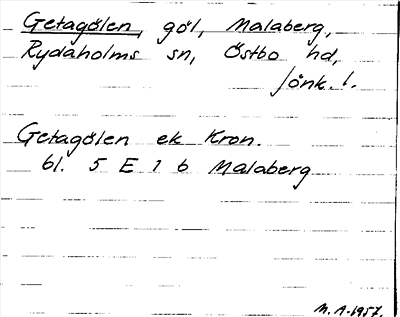 Getagölen, göl, Malaberg,
Rydaholms sn, Östbo hd,
Jönk. l.
Getagölen ek Kron.
bl. 5 E 1 b Malaberg
M. A. 1957.